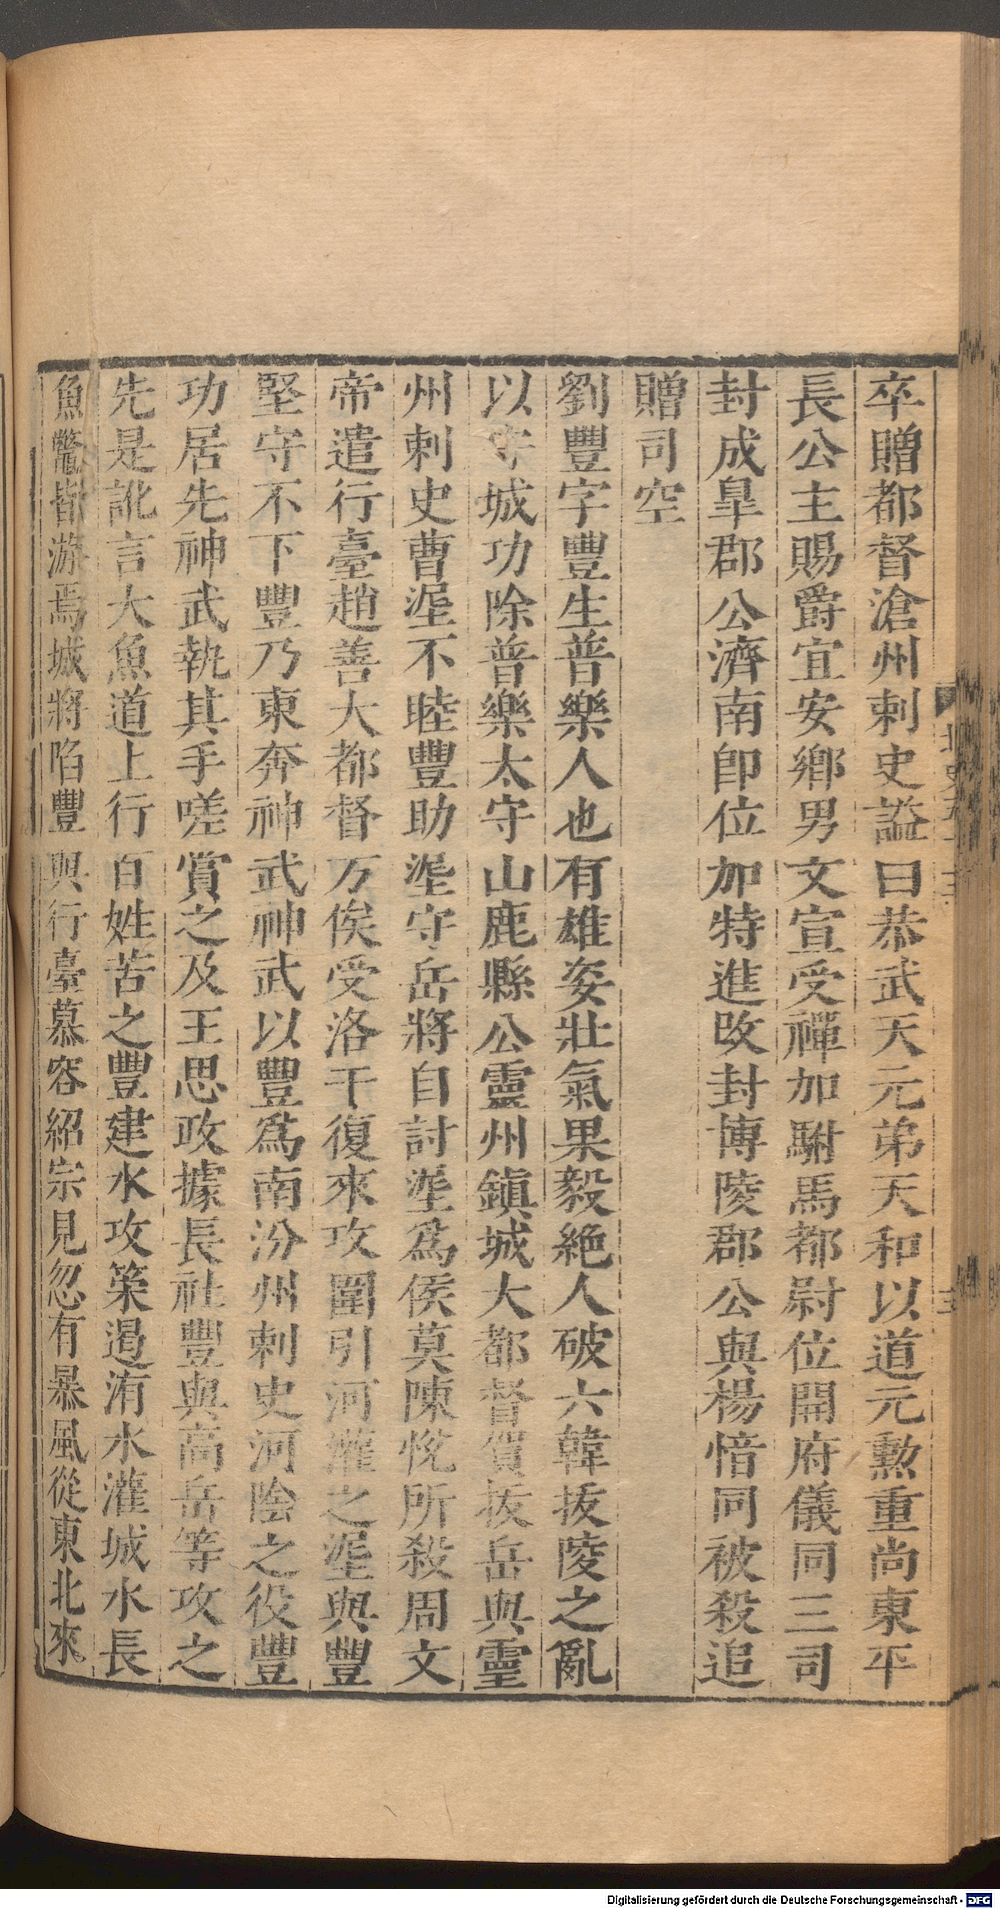 卒贈都督滄州刺史謚曰恭武天元弟天和以道元勲重尚東平
長公主賜爵宜安鄉男文宣受禪加駙馬都尉位開府儀同三司
封成臯郡公濟南即位加特進改封博陵郡公與楊愔同被殺追
贈司空
劉豐字豐生普樂人也有雄姿壯氣果毅絶人破六韓拔陵之亂
以守城功除普樂太守山鹿縣公靈州鎮城大都督賀拔岳與靈
州刺史曹埿不睦豐助埿守岳將自討埿爲侯莫陳悅所殺周文
帝遣行臺趙善大都督万俟受洛干復來攻圍引河灌之埿與豐
堅守不下豐乃東奔神武神武以豐爲南汾州刺史河陰之役豐
功居先神武執其手嗟賞之及王思政據長社豐與高岳等攻之
先是訛言大魚道上行百姓苦之豐建水攻策遏洧水灌城水長
魚鼈皆游焉城將陷豐與行臺慕容紹宗見忽有暴風從東北來
Digitalisierung gefördert durch die Deutsche Forschungsgemeinschaft - DFG